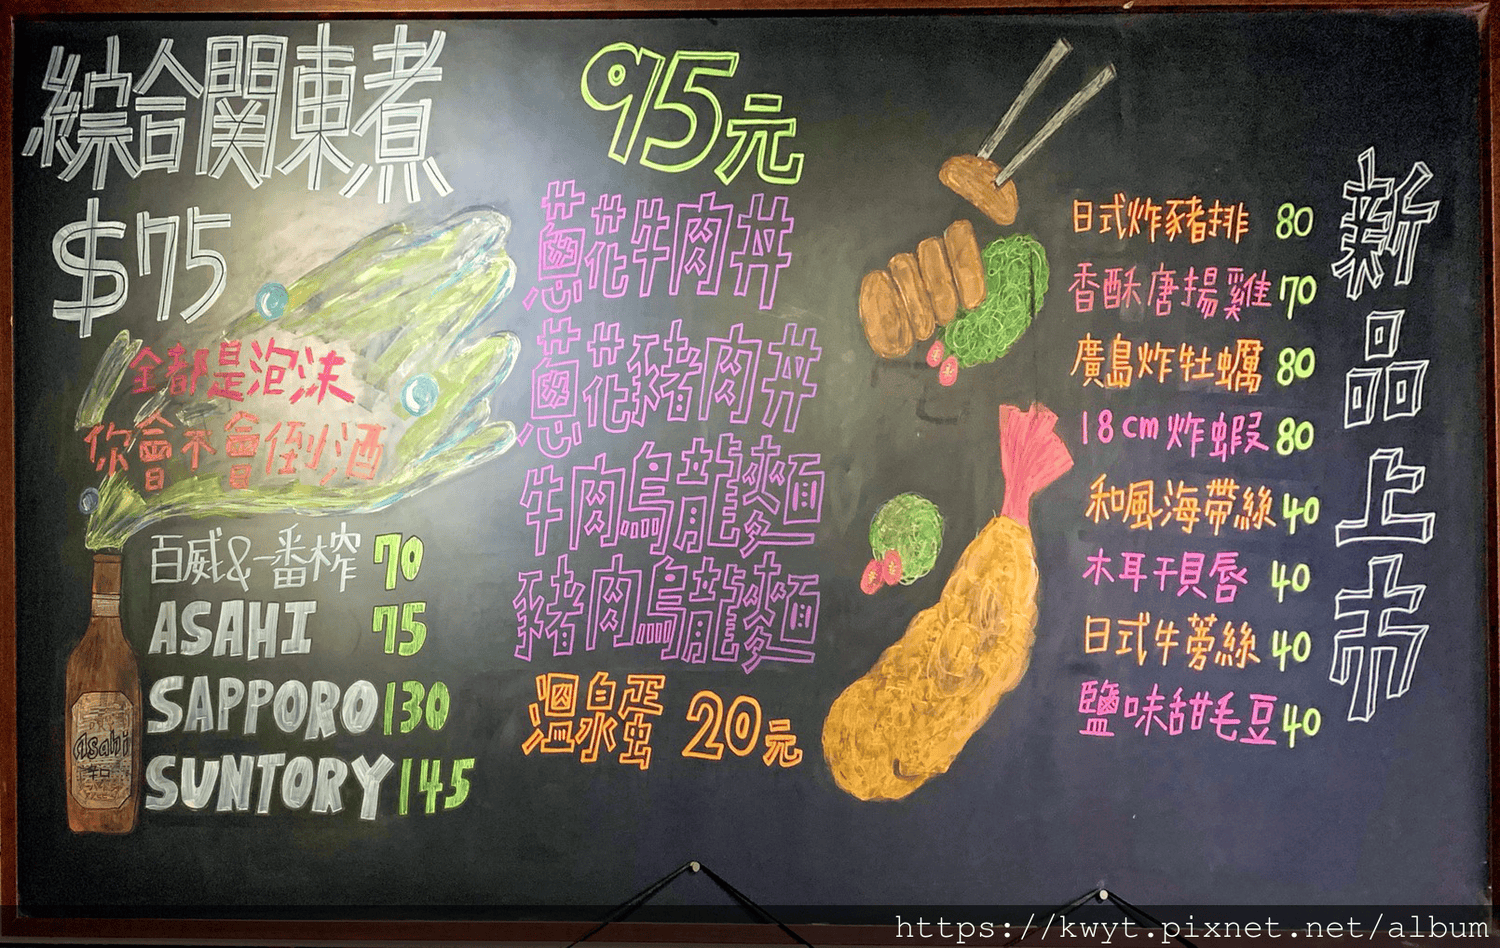 綜合関東煮
$75
全都是泡沫
你會不會倒酒
百威&一番榨 70
ASAHI 75
SAPPORO 130
SUNTORY 145
Asahi
95元
蔥花牛肉丼
蔥花豬肉丼
牛肉烏龍麵
豬肉烏龍麵
溫泉蛋 20元
新品上市
日式炸豬排 80
香酥唐揚雞 70
廣島炸牡蠣 80
18cm炸蝦 80
和風海帶絲 40
木耳干貝唇 40
日式牛蒡絲 40
鹽味甜毛豆 40
https://kwyt.pixnet.net/album